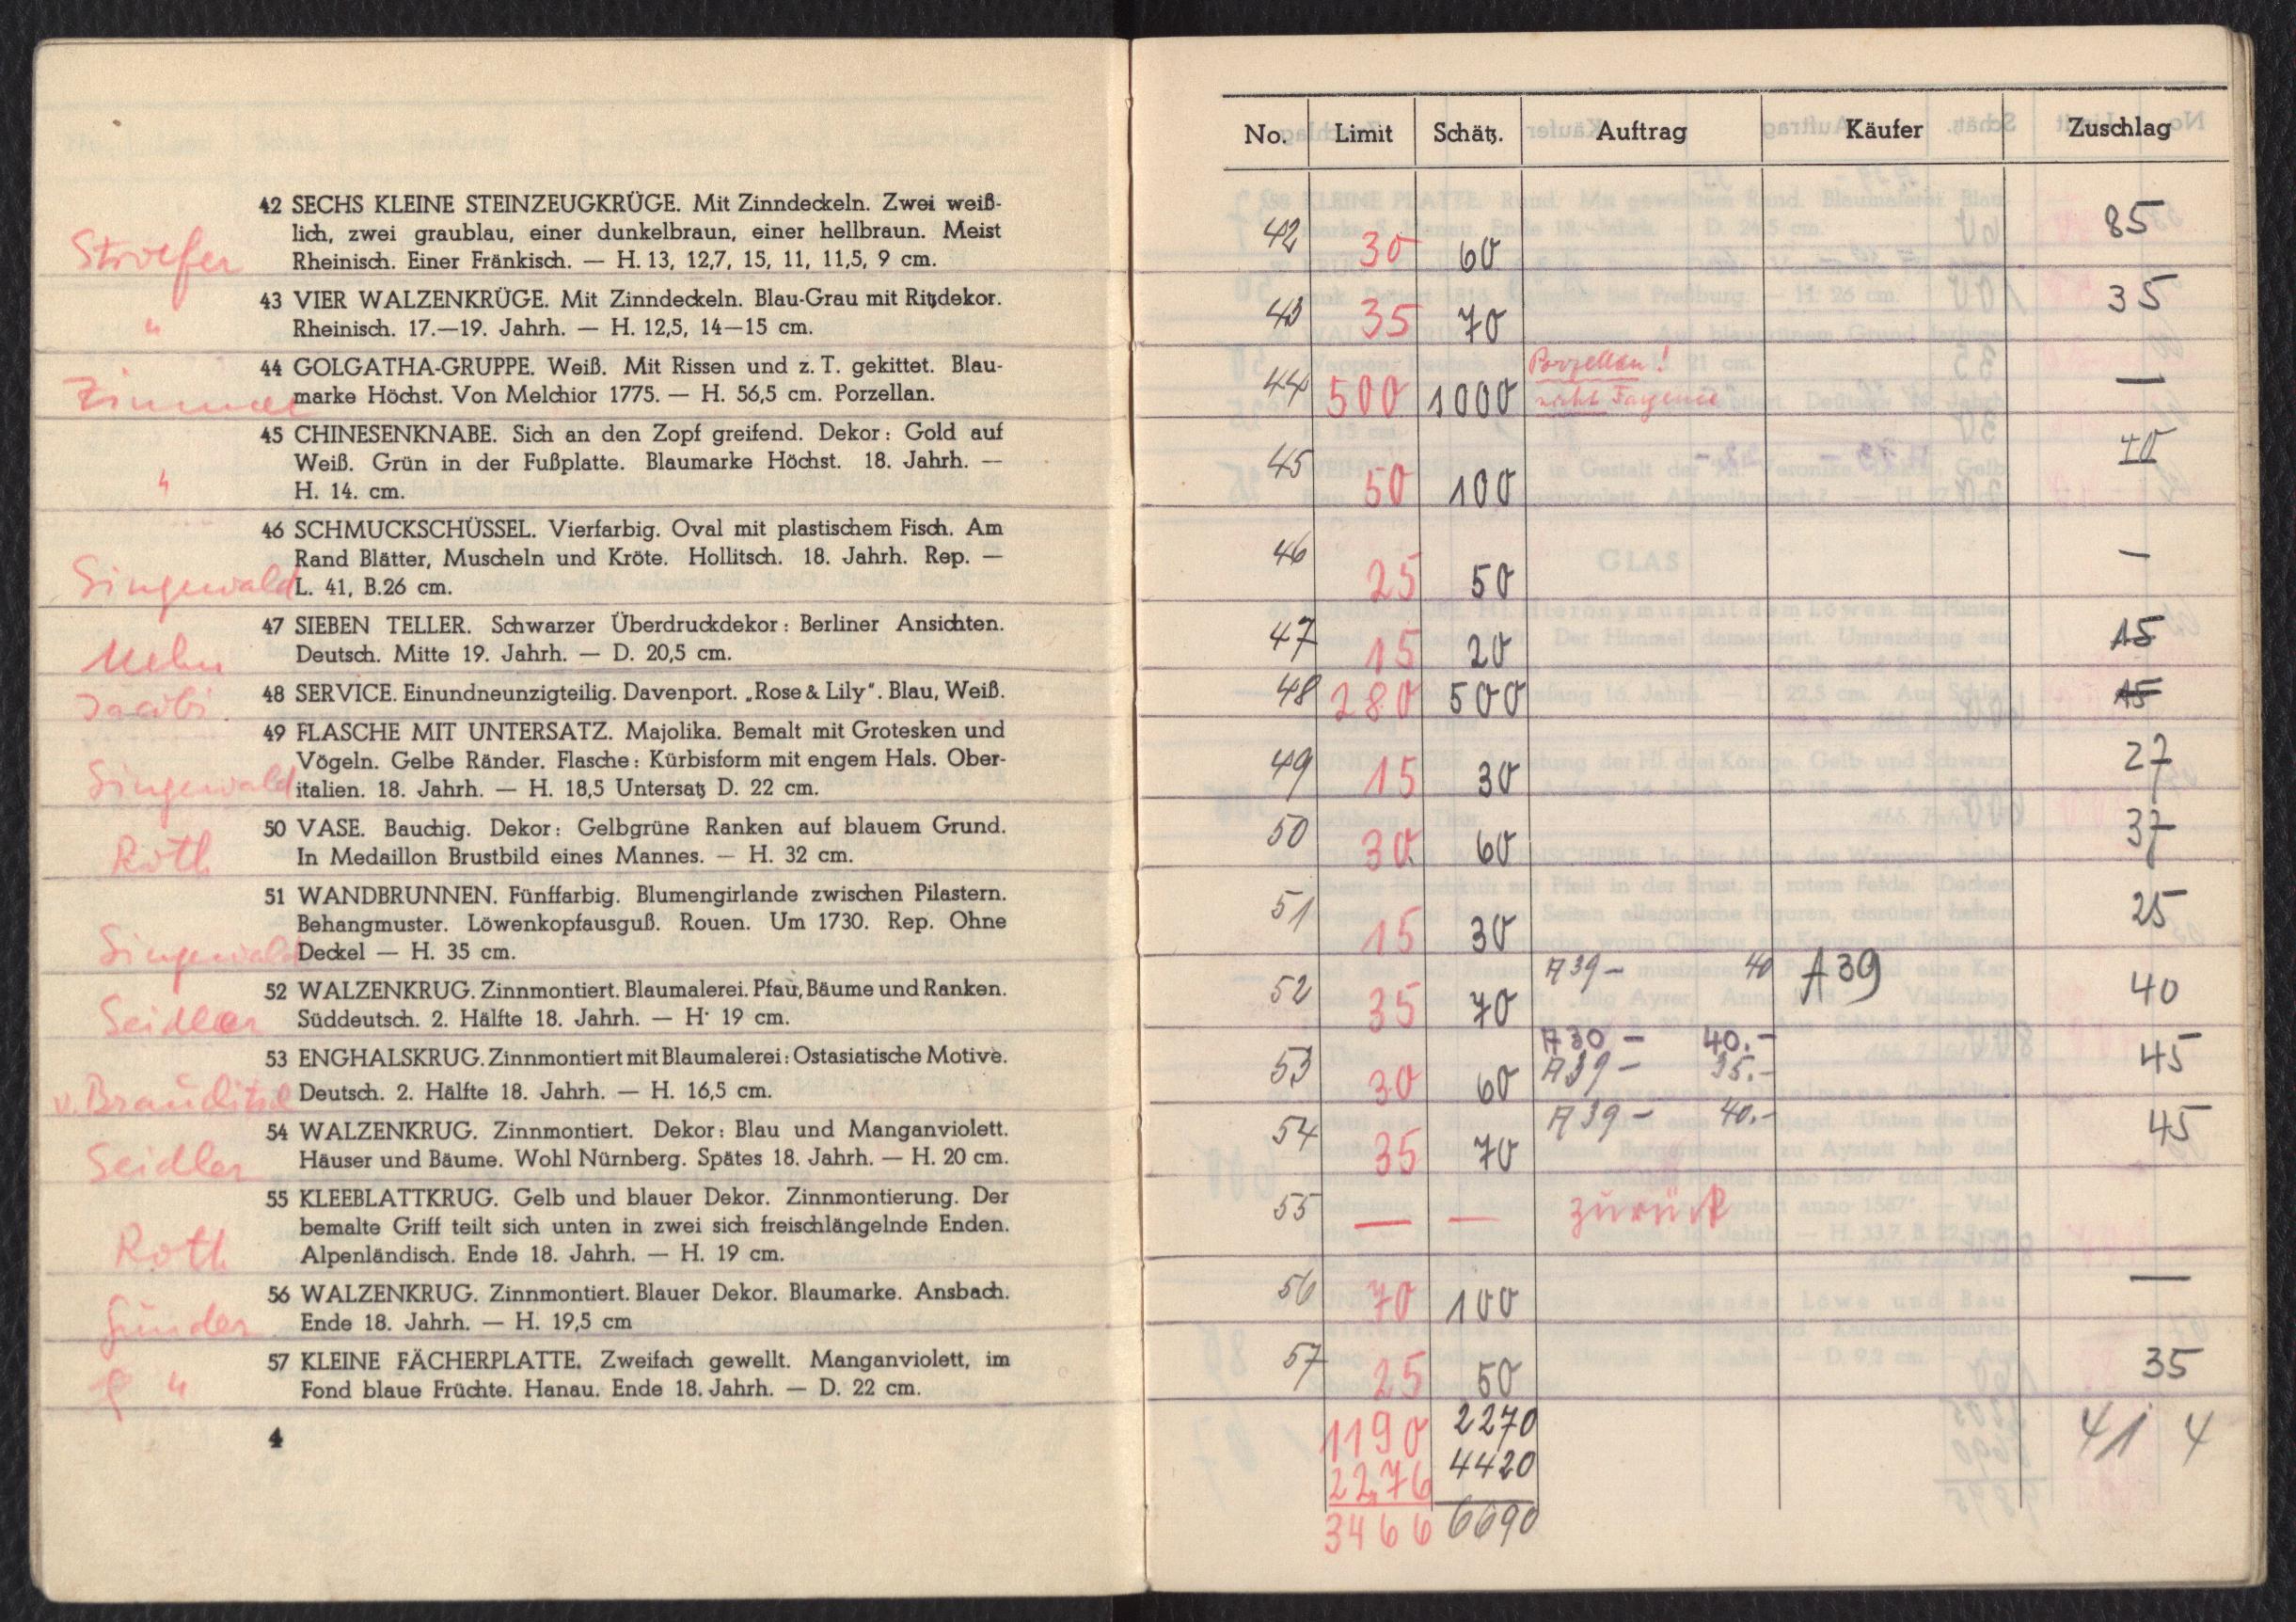 42 SECHS KLEINE STEINZEUGKRÜGE. Mit Zinndeckeln. Zwei weiß-
lich, zwei graublau, einer dunkelbraun, einer hellbraun. Meist
Stroefer Rheinisch. Einer Fränkisch. — H. 13, 12,7, 15, 11, 11,5, 9 cm.
43 VIER WALZENKRÜGE. Mit Zinndeckeln. Blau-Grau mit Ritzdekor.
" Rheinisch. 17.—19. Jahrh. — H. 12,5, 14—15 cm.
44 GOLGATHA-GRUPPE. Weiß. Mit Rissen und z. T. gekittet. Blau-
marke Höchst. Von Melchior 1775. — H. 56,5 cm. Porzellan.
45 CHINESENKNABE. Sich an den Zopf greifend. Dekor: Gold auf
Weiß. Grün in der Fußplatte. Blaumarke Höchst. 18. Jahrh. —
" H. 14. cm.
46 SCHMUCKSCHÜSSEL. Vierfarbig. Oval mit plastischem Fisch. Am
Rand Blätter, Muscheln und Kröte. Hollitsch. 18. Jahrh. Rep. —
Singewald L. 41, B.26 cm.
47 SIEBEN TELLER. Schwarzer Überdruckdekor: Berliner Ansichten.
Deutsch. Mitte 19. Jahrh. — D. 20,5 cm.
Jacobi 48 SERVICE. Einundneunzigteilig. Davenport. „Rose & Lily". Blau, Weiß.
49 FLASCHE MIT UNTERSATZ. Majolika. Bemalt mit Grotesken und
Vögeln. Gelbe Ränder. Flasche: Kürbisform mit engem Hals. Ober-
Singewald italien. 18. Jahrh. — H. 18,5 Untersatz D. 22 cm.
50 VASE. Bauchig. Dekor: Gelbgrüne Ranken auf blauem Grund.
Roth In Medaillon Brustbild eines Mannes. — H. 32 cm.
51 WANDBRUNNEN. Fünffarbig. Blumengirlande zwischen Pilastern.
Behangmuster. Löwenkopfausguß. Rouen. Um 1730. Rep. Ohne
Singewald Deckel — H. 35 cm.
52 WALZENKRUG. Zinnmontiert. Blaumalerei. Pfau, Bäume und Ranken.
Seidler Süddeutsch. 2. Hälfte 18. Jahrh. — H· 19 cm.
53 ENGHALSKRUG. Zinnmontiert mit Blaumalerei: Ostasiatische Motive.
v. Brauchitsch Deutsch. 2. Hälfte 18. Jahrh. — H. 16,5 cm.
54 WALZENKRUG. Zinnmontiert. Dekor: Blau und Manganviolett.
Seidler Häuser und Bäume. Wohl Nürnberg. Spätes 18. Jahrh. — H. 20 cm.
55 KLEEBLATTKRUG. Gelb und blauer Dekor. Zinnmontierung. Der
bemalte Griff teilt sich unten in zwei sich freischlängelnde Enden.
Roth Alpenländisch. Ende 18. Jahrh. — H. 19 cm.
56 WALZENKRUG. Zinnmontiert. Blauer Dekor. Blaumarke. Ansbach.
Günder Ende 18. Jahrh. — H. 19,5 cm
57 KLEINE FÄCHERPLATTE. Zweifach gewellt. Manganviolett, im
" Fond blaue Früchte. Hanau. Ende 18. Jahrh. — D. 22 cm.
4
No. Limit Schätz. Auftrag Käufer Zuschlag
42 30 60 85
43 35 70 35
44 500 1000 Porzellan! nicht Fayence —
45 50 100 40
46 25 50 —
47 15 20 15
48 280 500 15
49 15 30 27
50 30 60 37
51 15 30 25
52 35 70 A 39 – 40 A 39 40
53 30 60 A 30 – 40.– 45
A 39 – 35.–
54 35 70 A 39 – 40.– 45
55 — — zurück
56 70 100 —
57 25 50 35
1190 2270 414
2276 4420
3466 6690